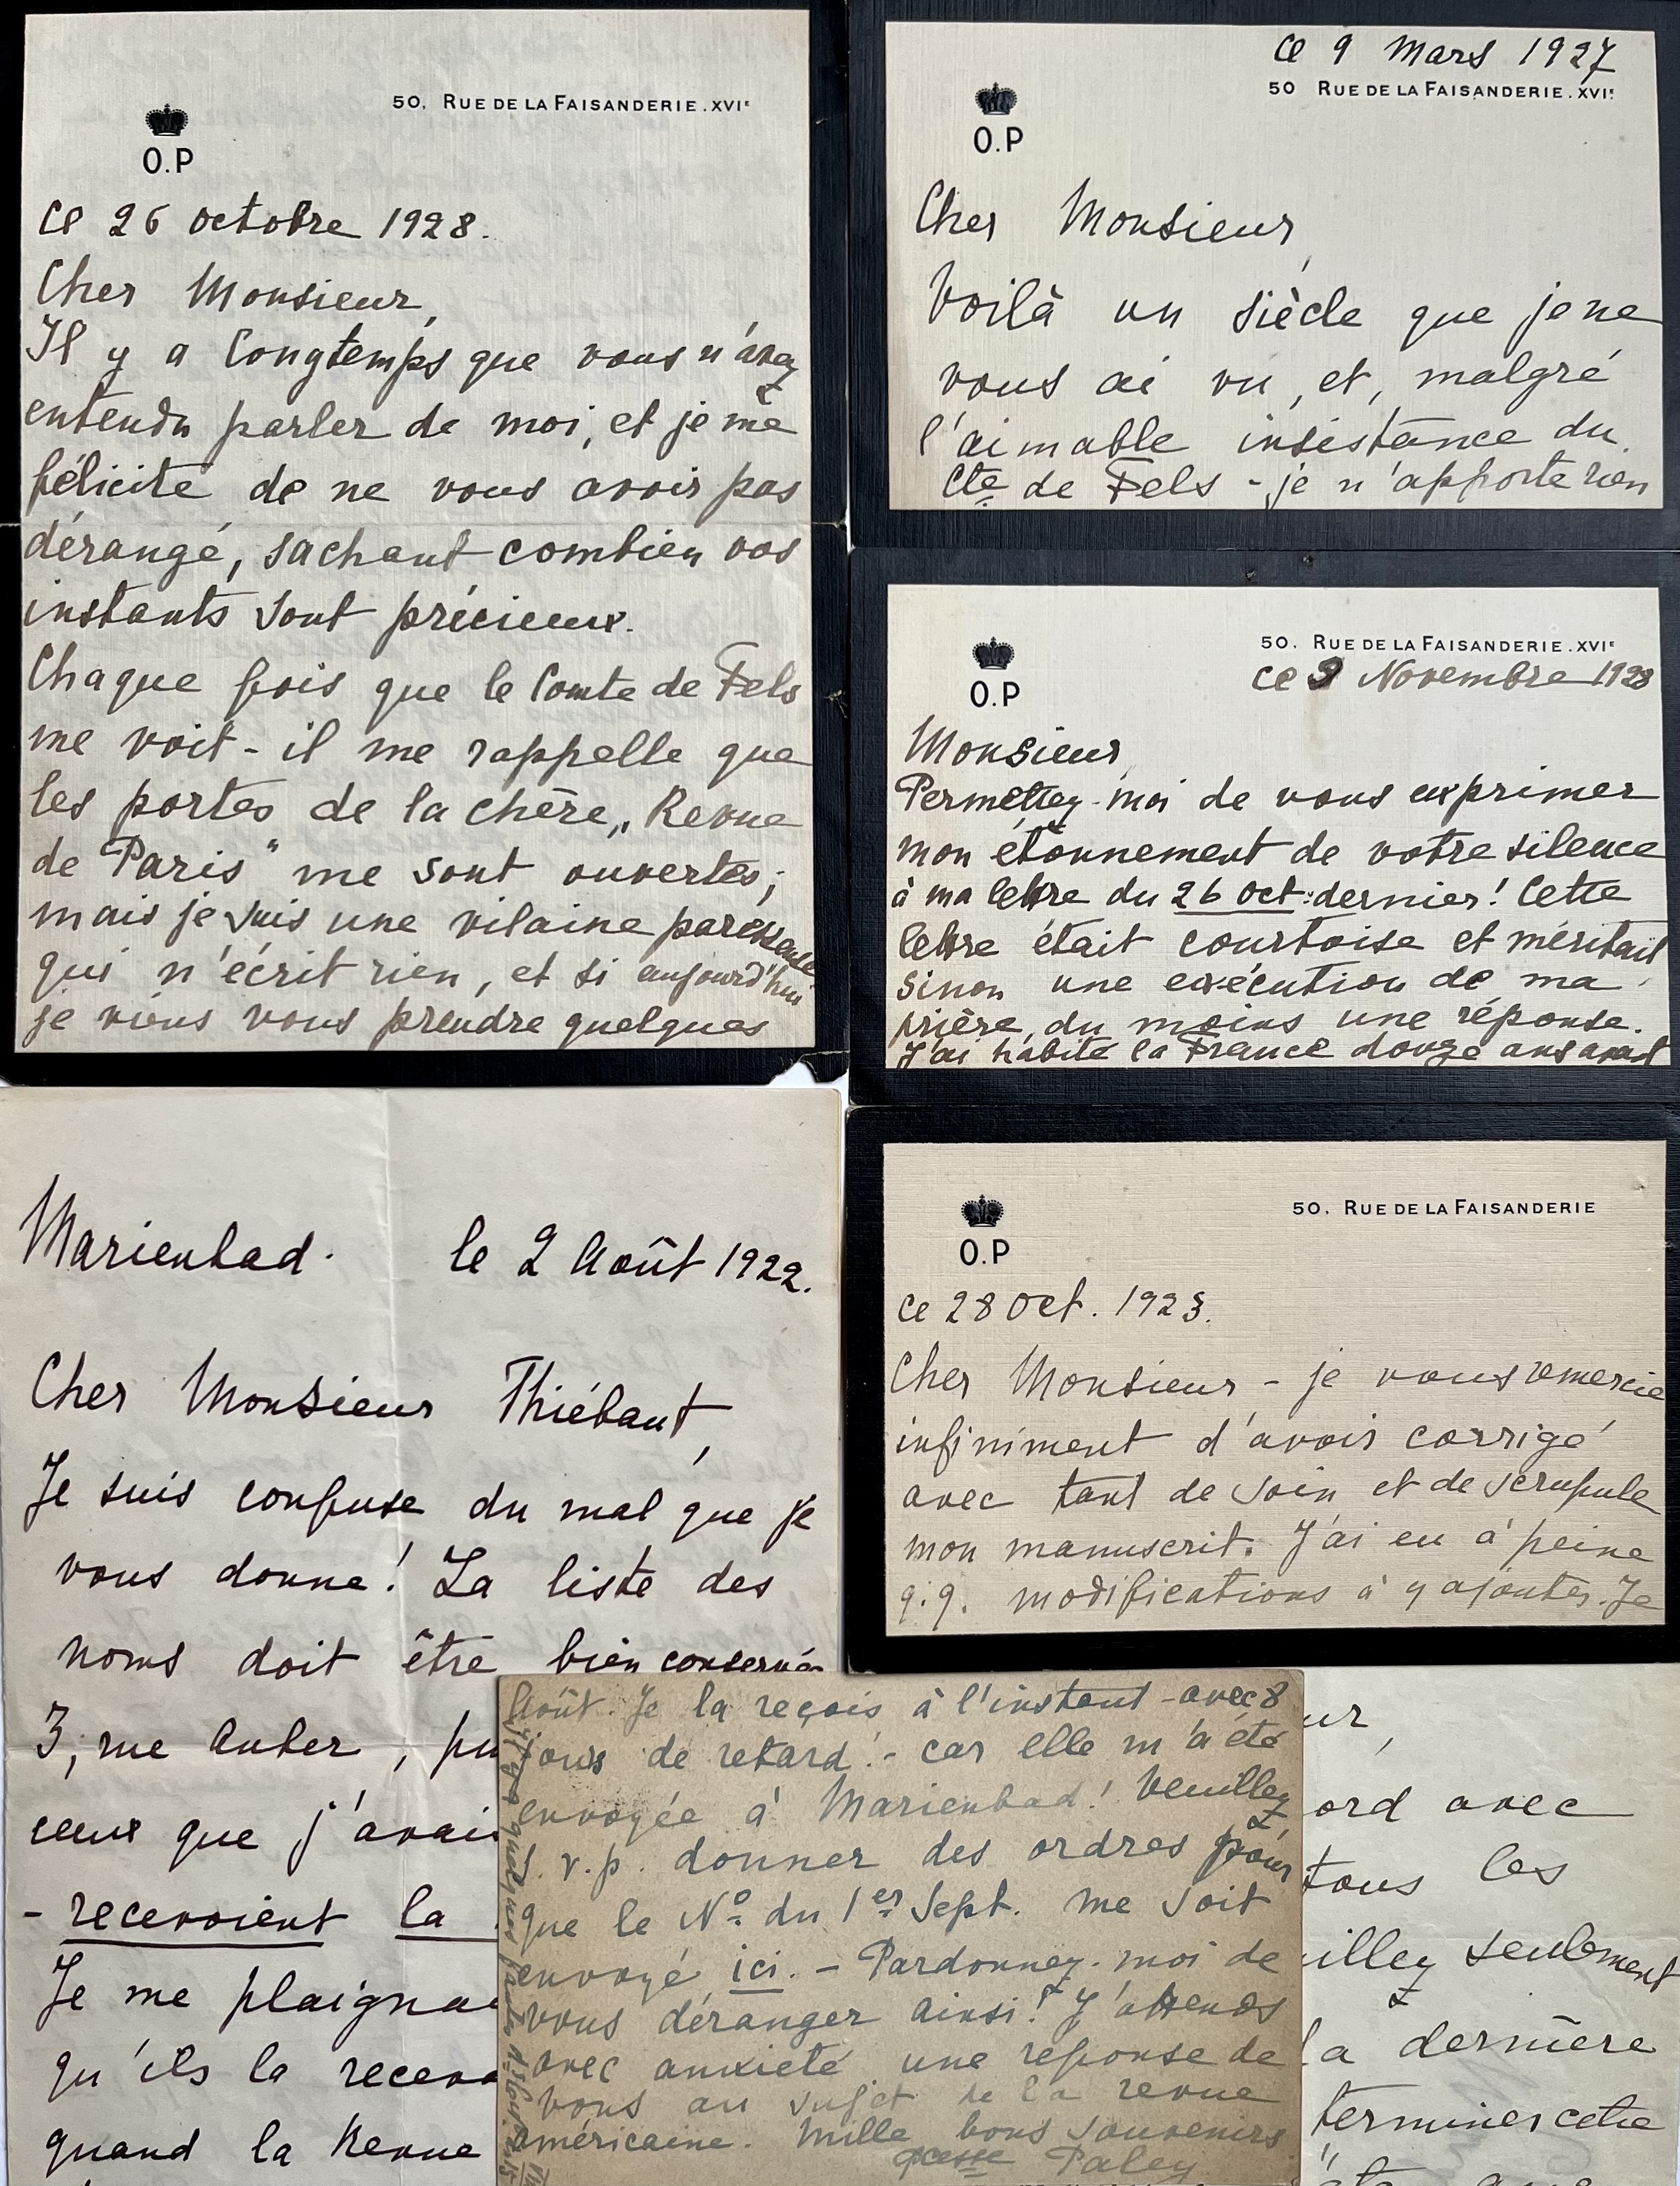 50, RUE DE LA FAISANDERIE.XVIe
O.P
ce 26 octobre 1928.
Cher Monsieur,
Il y a longtemps que vous n'avez
entendu parler de moi, et je me
félicite de ne vous avoir pas
dérangé, sachant combien vos
instants sont précieux.
Chaque fois que le Comte de Fels
me voit - il me rappelle que
les portes de la chère „Revue
de Paris" me sont ouvertes;
mais je suis une vilaine paresseuse
qui n'écrit rien, et si aujourd'hui
je viens vous prendre quelques
ce 9 Mars 1927
50 RUE DE LA FAISANDERIE.XVIe
O.P
Cher Monsieur,
Voilà un siècle que je ne
vous ai vu, et, malgré
l'aimable insistance du
Cte de Fels - je n'apporte rien
50, RUE DE LA FAISANDERIE.XVIe
ce 9 Novembre 1928
O.P
Monsieur,
Permettez-moi de vous exprimer
mon étonnement de votre silence
à ma lettre du 26 oct. dernier! Cette
lettre était courtoise et méritait
sinon une exécution de ma
prière, du moins une réponse.
J'ai habité la France douze ans avant
50, RUE DE LA FAISANDERIE
O.P
ce 28 Oct. 1923.
Cher Monsieur - je vous remercie
infiniment d'avoir corrigé
avec tant de soin et de scrupule
mon manuscrit. J'ai eu à peine
q.q. modifications à y ajouter. Je
Marienbad. le 2 Août 1922.
Cher Monsieur Thiébaut,
Je suis confuse du mal que je
vous donne! La liste des
noms doit être bien conservée
3, rue Auber, pu
ceux que j'avais
- recevoient la
Je me plaigna
qu'ils la receva
quand la Revue
Août. Je la reçois à l'instant - avec 8
jours de retard! - car elle m'a été
envoyée à Marienbad! Veuillez
s. v. p. donner des ordres pour
que le No du 1er Sept. me soit
envoyé ici. - Pardonnez-moi de
vous déranger ainsi! J'attends
avec anxiété une réponse de
vous au sujet de la revue
américaine. Mille bons souvenirs
Pcesse Paley
ur,
ord avec
tous les
illez seulement
la dernière
terminer cette